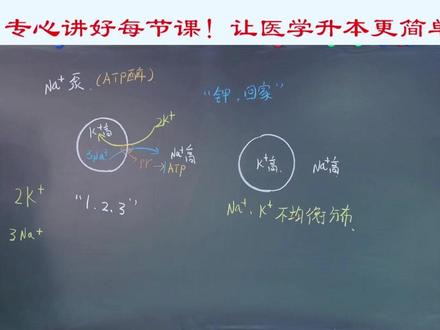 专心讲好每节课！让医学升本更简单
Na⁺泵.(ATP酶)
"钾,回家"
K⁺高
2K⁺
3Na⁺
Na⁺高
ATP
K⁺高.
Na⁺高
2K⁺
3Na⁺
"1.2.3"
Na⁺、K⁺不均衡分布.